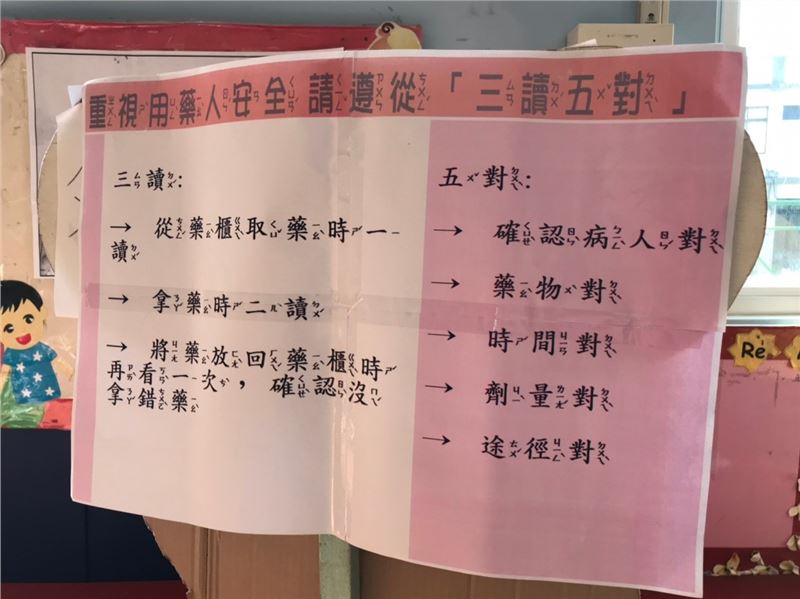 重視用藥人安全請遵從「三讀五對」
三讀:
→ 從藥櫃取藥時一
讀
→ 拿藥時二讀
→ 將藥放回藥櫃時
再看一次，確認沒
拿錯藥
五對:
→ 確認病人對
→ 藥物對
→ 時間對
→ 劑量對
→ 途徑對
Re